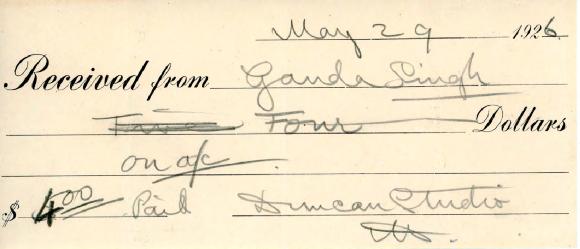 May 29 1926
Received from Ganda Singh
Four Dollars
on a/c.
$ 4.00 Paid Duncan Studio